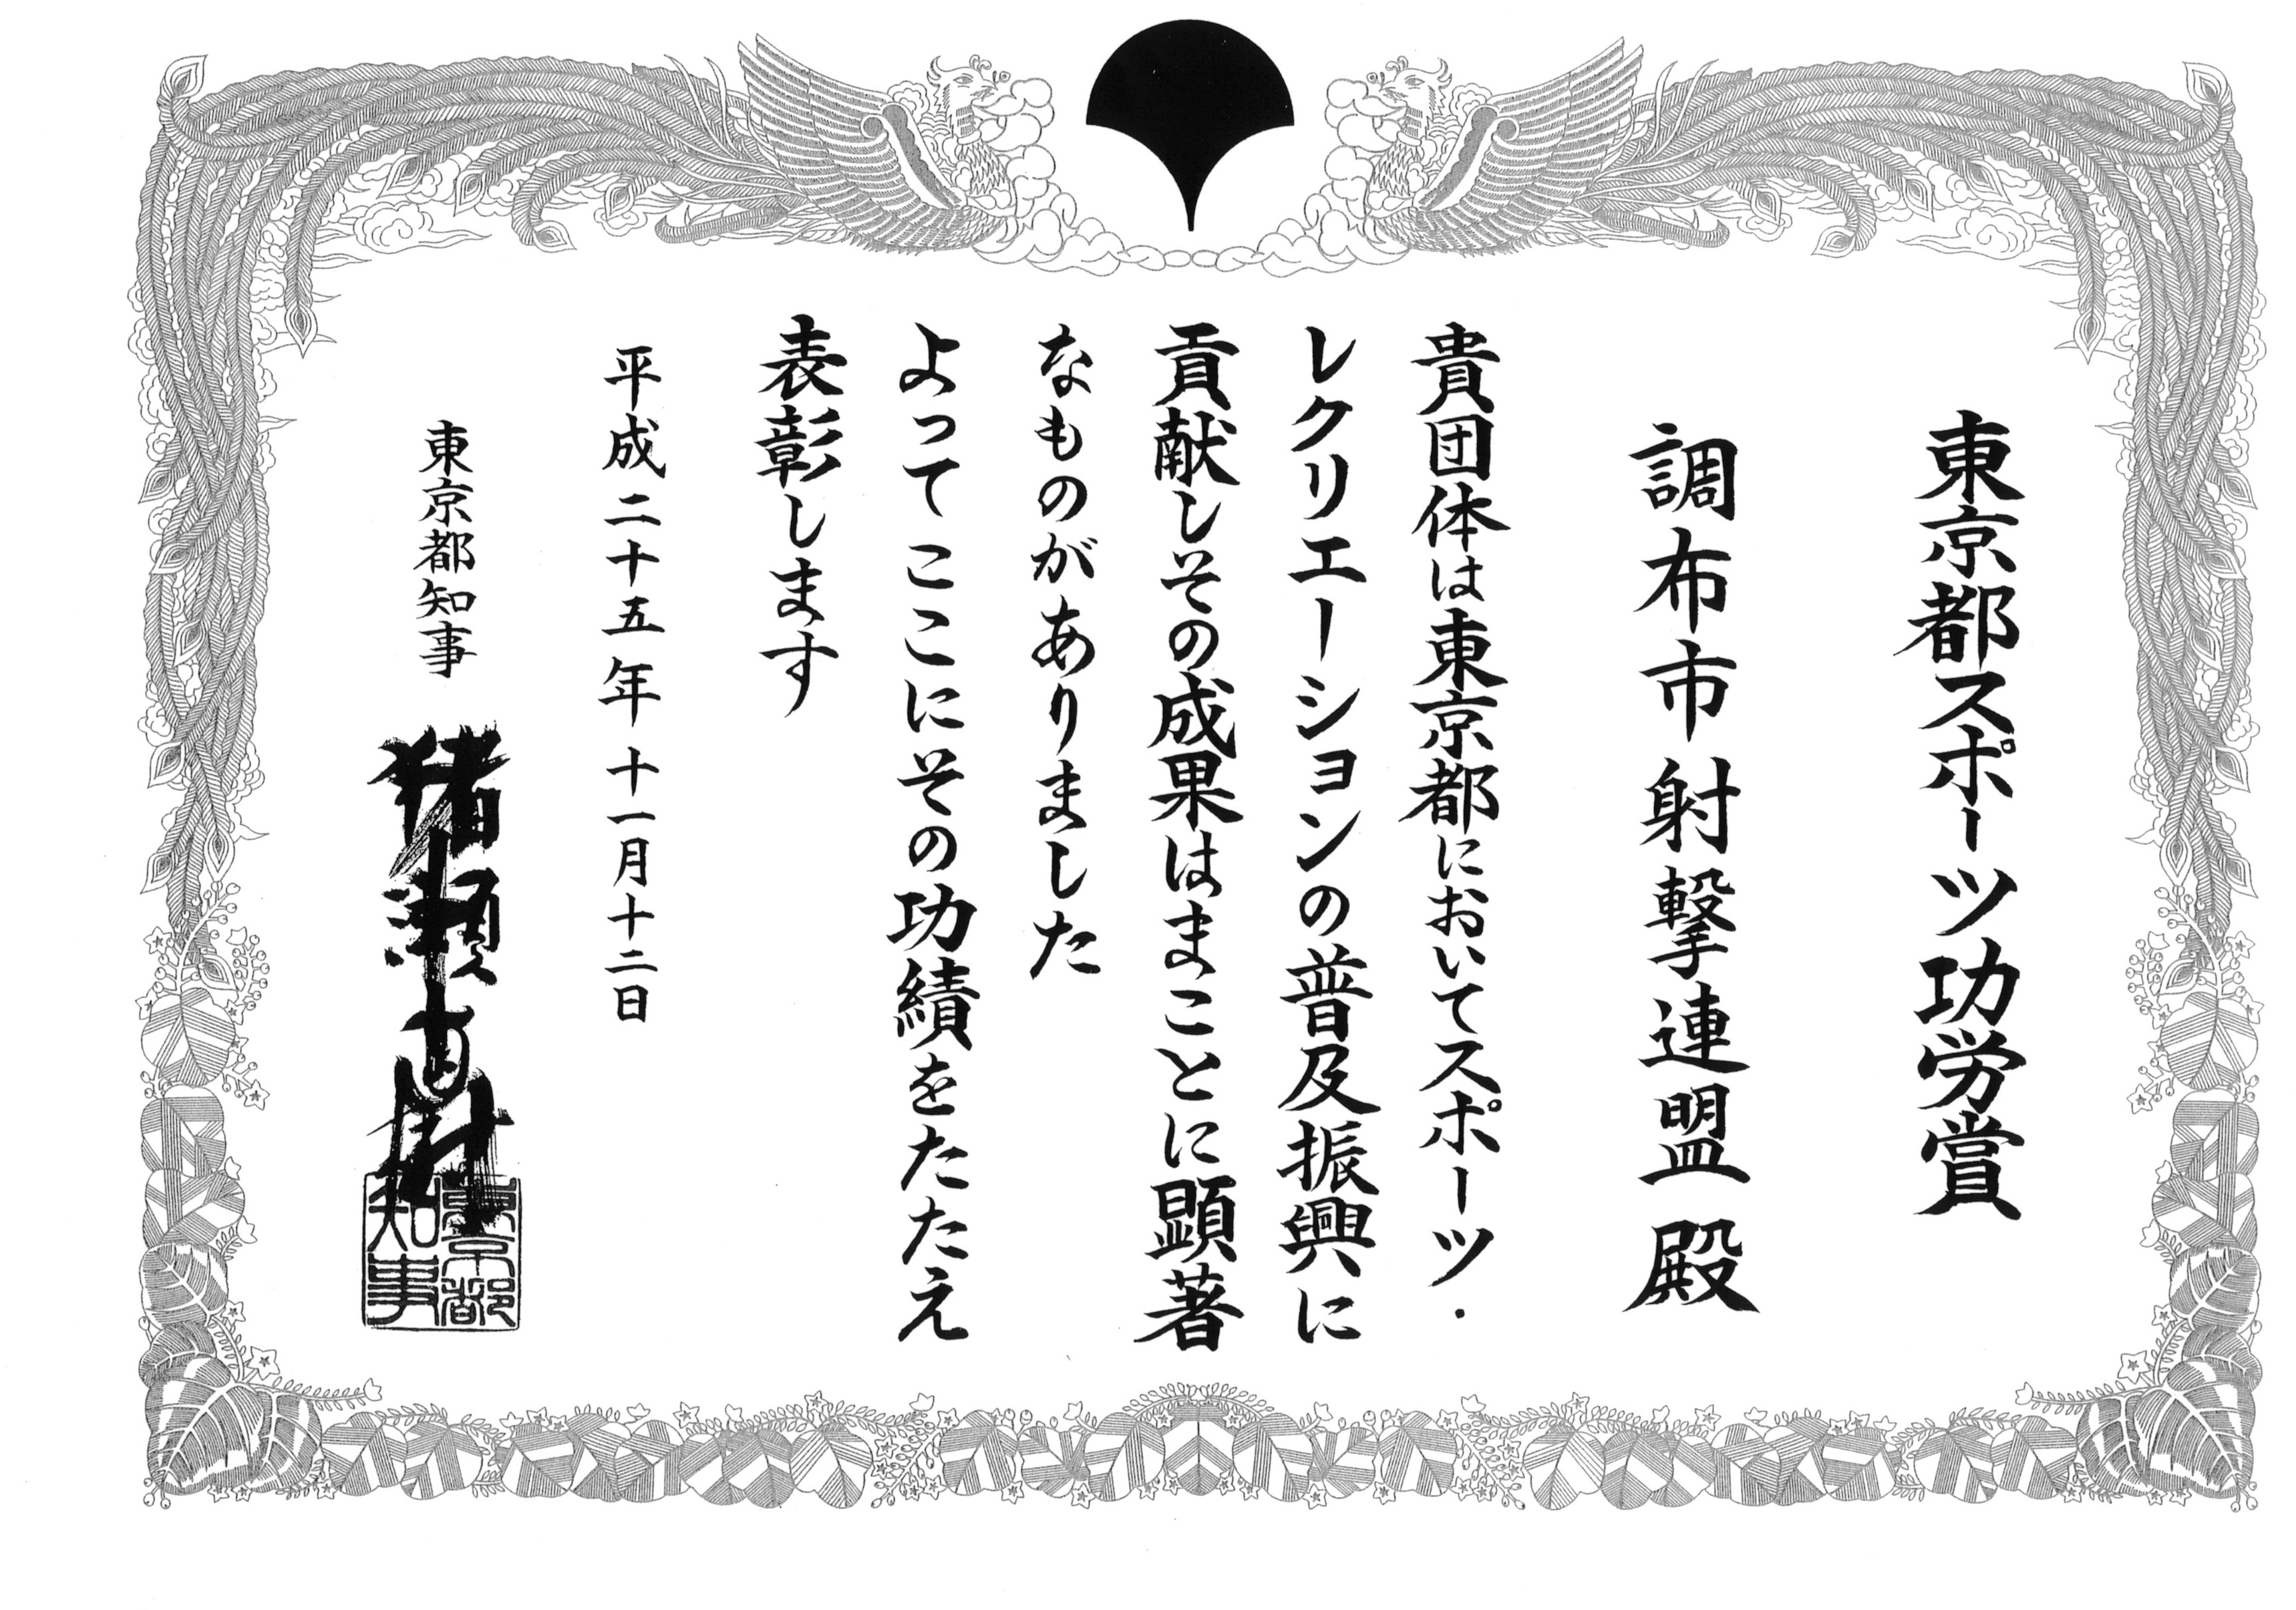 東京都スポーツ功労賞
調布市射撃連盟殿
貴団体は東京都においてスポーツ・
レクリエーションの普及振興に
貢献しその成果はまことに顕著
なものがありました
よってここにその功績をたたえ
表彰します
平成二十五年十一月十二日
東京都知事
猪瀬直樹
東京都
知事